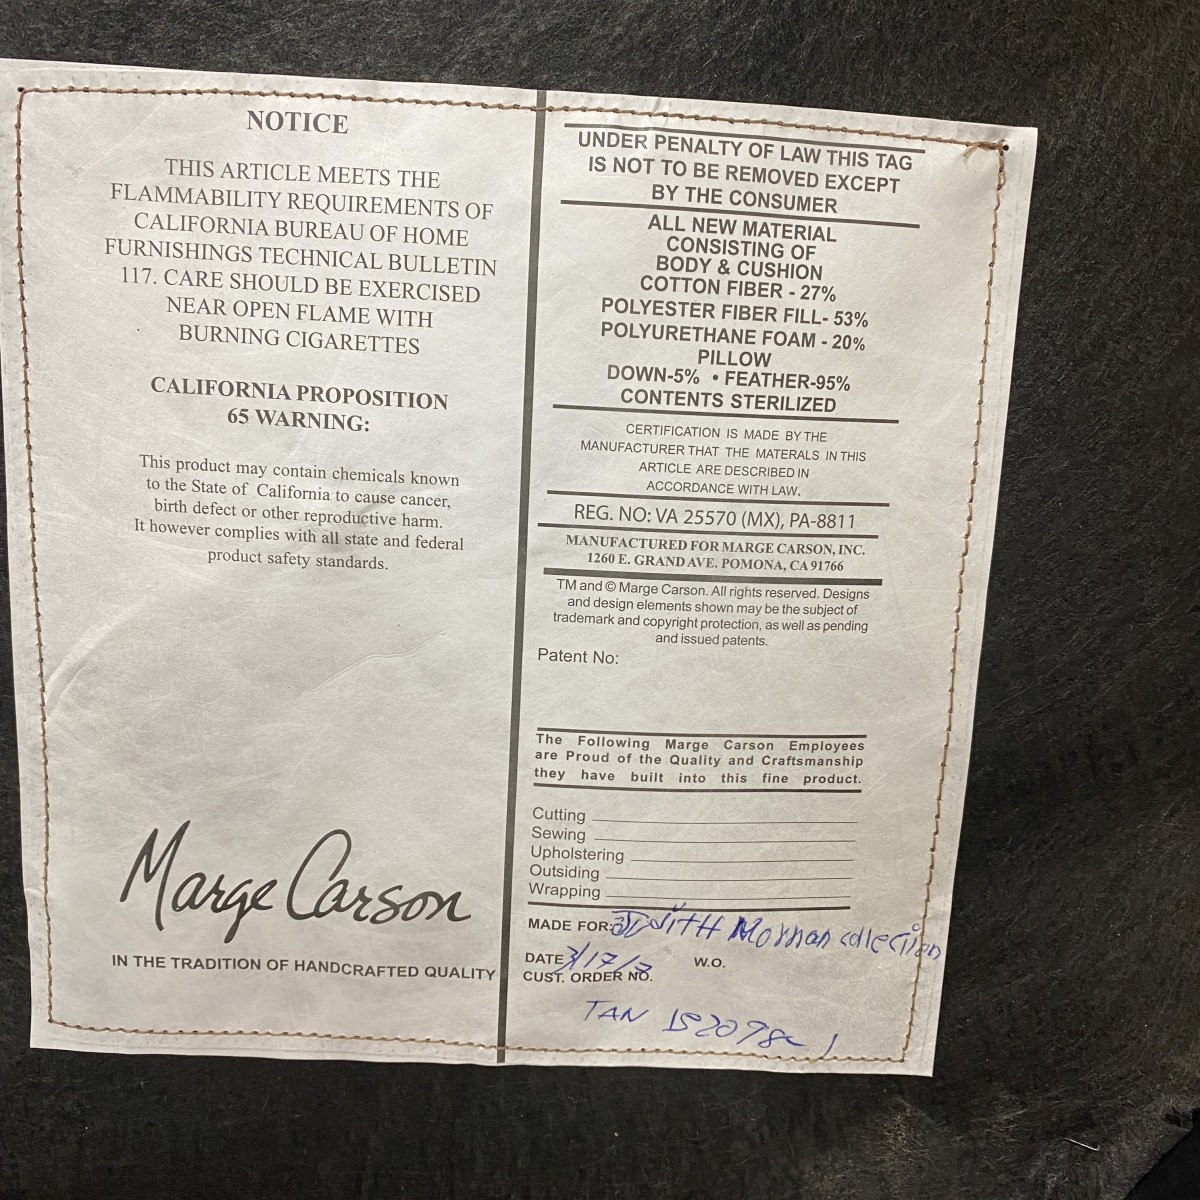 NOTICE
THIS ARTICLE MEETS THE
FLAMMABILITY REQUIREMENTS OF
CALIFORNIA BUREAU OF HOME
FURNISHINGS TECHNICAL BULLETIN
117. CARE SHOULD BE EXERCISED
NEAR OPEN FLAME WITH
BURNING CIGARETTES
CALIFORNIA PROPOSITION
65 WARNING:
This product may contain chemicals known
to the State of California to cause cancer,
birth defect or other reproductive harm.
It however complies with all state and federal
product safety standards.
Marge Carson
IN THE TRADITION OF HANDCRAFTED QUALITY
UNDER PENALTY OF LAW THIS TAG
IS NOT TO BE REMOVED EXCEPT
BY THE CONSUMER
ALL NEW MATERIAL
CONSISTING OF
BODY & CUSHION
COTTON FIBER - 27%
POLYESTER FIBER FILL- 53%
POLYURETHANE FOAM - 20%
PILLOW
DOWN-5% • FEATHER-95%
CONTENTS STERILIZED
CERTIFICATION IS MADE BY THE
MANUFACTURER THAT THE MATERALS IN THIS
ARTICLE ARE DESCRIBED IN
ACCORDANCE WITH LAW.
REG. NO: VA 25570 (MX), PA-8811
MANUFACTURED FOR MARGE CARSON, INC.
1260 E. GRAND AVE. POMONA, CA 91766
TM and © Marge Carson. All rights reserved. Designs
and design elements shown may be the subject of
trademark and copyright protection, as well as pending
and issued patents.
Patent No:
The Following Marge Carson Employees
are Proud of the Quality and Craftsmanship
they have built into this fine product.
Cutting
Sewing
Upholstering
Outsiding
Wrapping
MADE FOR:
DATE 3/17/ W.O.
CUST. ORDER NO.
TAN